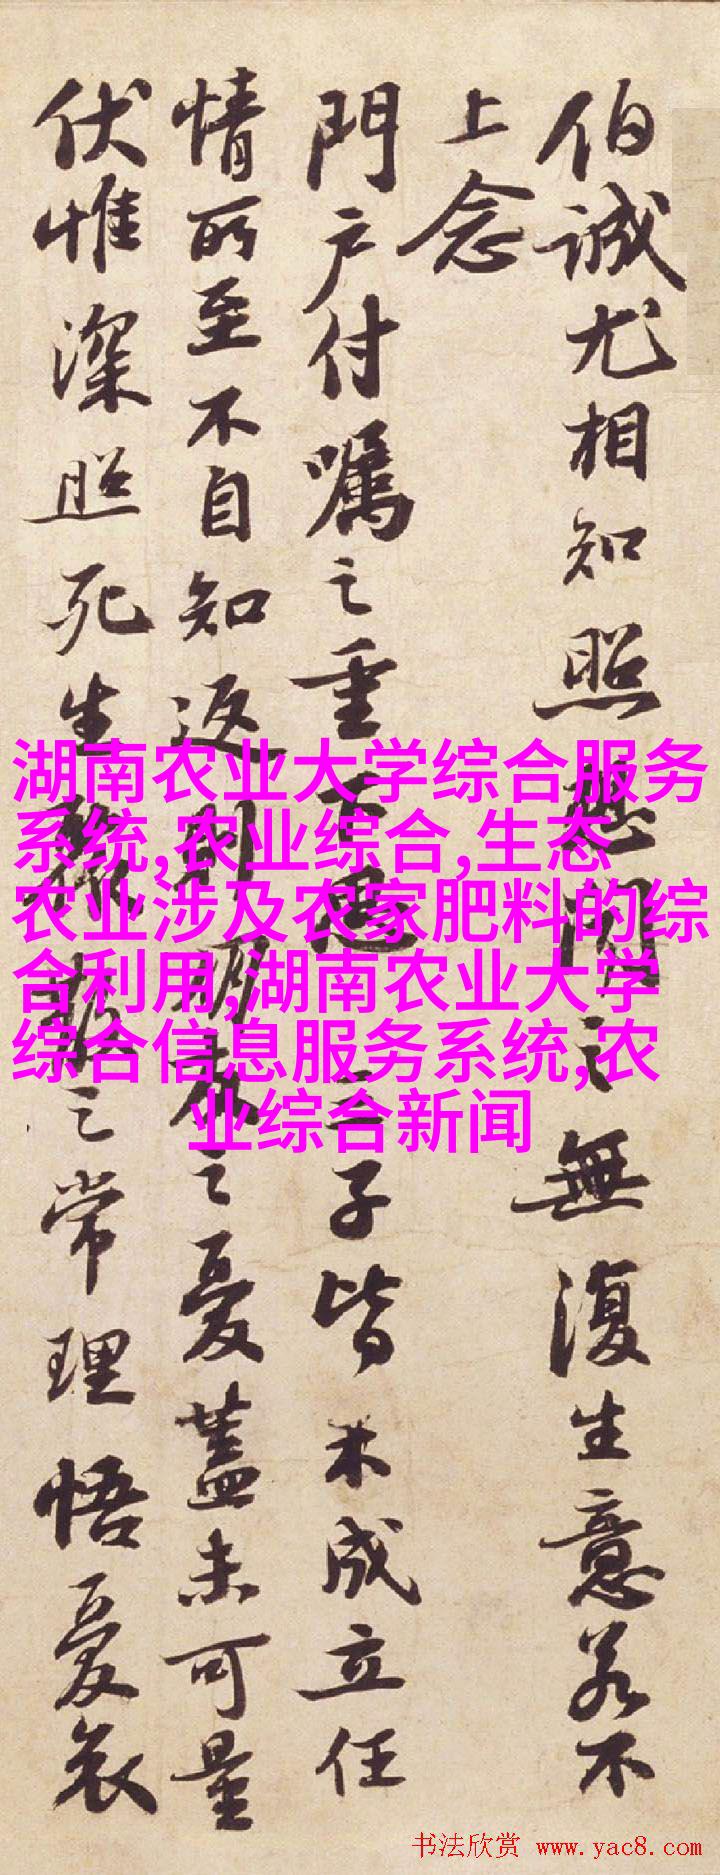 伯誠尤相知照想聞之無復生意若不
上念
門户付囑之重下思三子皆未成立任
情所至不自知返則朋友之憂蓋未可量
伏惟深照死生聚散之常理悟憂哀
湖南农业大学综合服务
系统,农业综合,生态
农业涉及农家肥料的综
合利用,湖南农业大学
综合信息服务系统,农
业综合新闻
书法欣赏 www.yac8.com